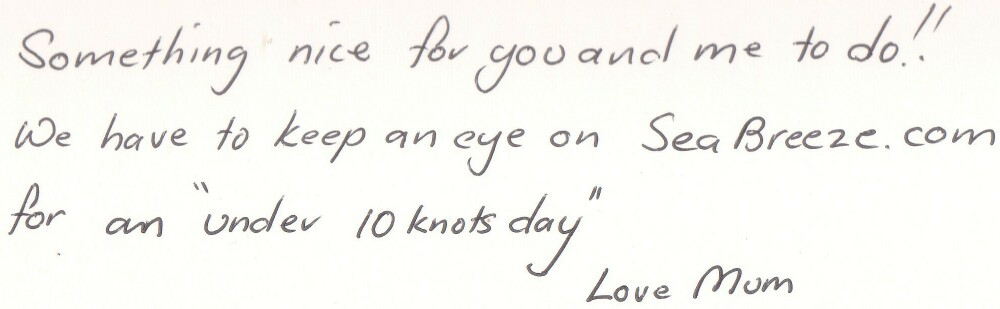 Something nice for you and me to do!!
We have to keep an eye on SeaBreeze.com
for an "under 10 knots day"
Love Mum